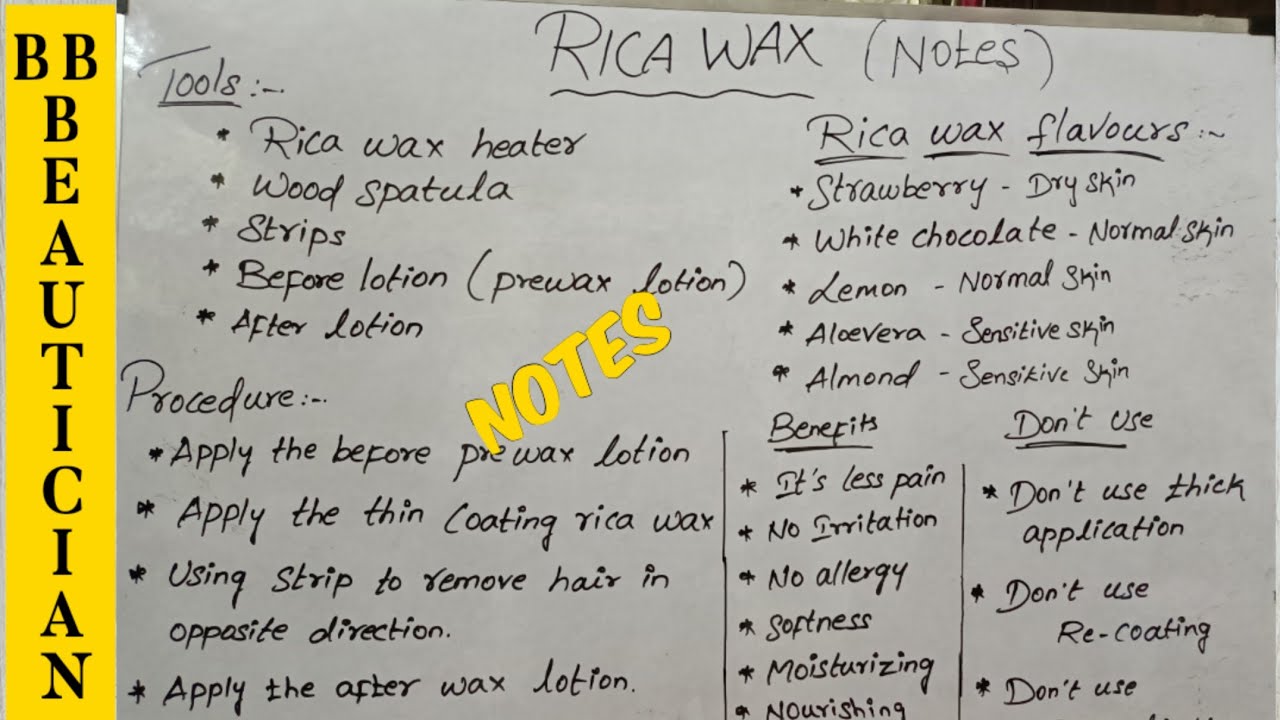 BB
BEAUTICIAN
RICA WAX (Notes)
Tools:-
* Rica wax heater
* Wood spatula
* Strips
* Before lotion (prewax lotion)
* After lotion
Procedure:-
* Apply the before prewax lotion
* Apply the thin coating rica wax
* Using strip to remove hair in
opposite direction.
* Apply the after wax lotion.
NOTES
Rica wax flavours:-
* Strawberry - Dry skin
* White chocolate - Normal skin
* Lemon - Normal skin
* Aloevera - Sensitive skin
* Almond - Sensitive skin
Benefits
* It's less pain
* No Irritation
* No allergy
* Softness
* Moisturizing
* Nourishing
Don't use
* Don't use thick
application
* Don't use
Re-coating
* Don't use